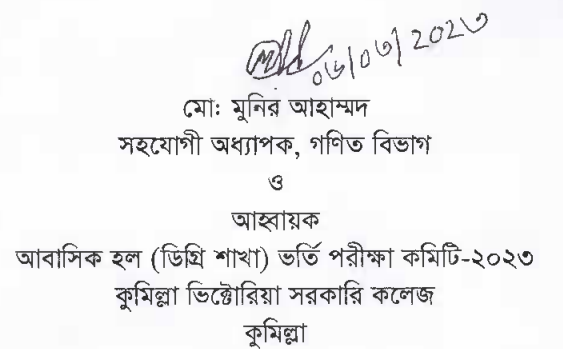 ০৬/০৩/২০২৩
মোঃ মুনির আহাম্মদ
সহযোগী অধ্যাপক, গণিত বিভাগ
ও
আহ্বায়ক
আবাসিক হল (ডিগ্রি শাখা) ভর্তি পরীক্ষা কমিটি-২০২৩
কুমিল্লা ভিক্টোরিয়া সরকারি কলেজ
কুমিল্লা